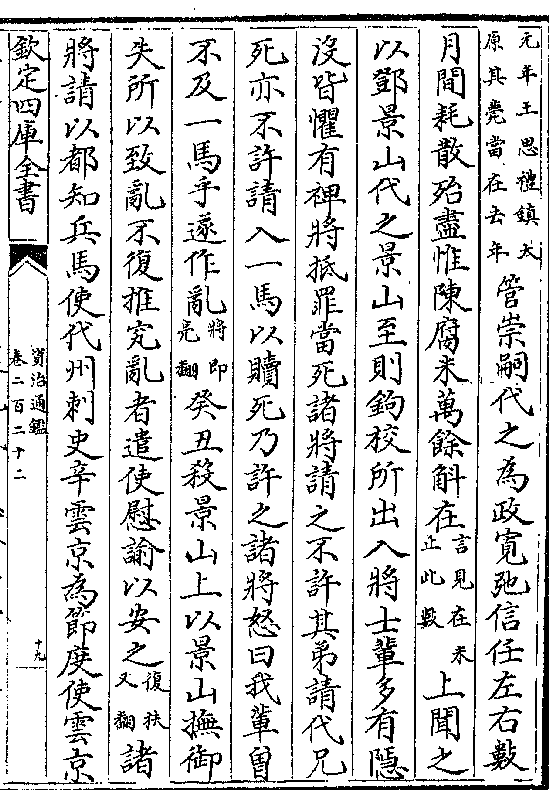 元年王思禮鎮太
原其薨當在去年
管崇嗣代之為政寛弛信任左右數
月間耗散殆盡惟陳腐米萬餘斛在
言見在米
止此數
上聞之
以鄧景山代之景山至則鉤校所出入將士輩多有隱
沒皆懼有禆將抵罪當死諸將請之不許其弟請代兄
死亦不許請入一馬以贖死乃許之諸將怒曰我輩曽
不及一馬乎遂作亂
將即
亮翻
癸丑殺景山上以景山撫御
失所以致亂不復推究亂者遣使慰諭以安之
復扶
又翻
諸
將請以都知兵馬使代州刺史辛雲京為節度使雲京
欽定四庫全書
資治通鑑
卷二百二十二
十九